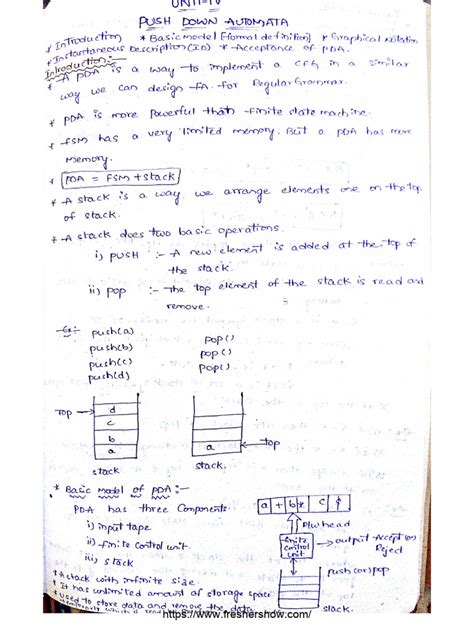 UNIT-IV
PUSH DOWN AUTOMATA
* Introduction * Basic model [formal definition] * Graphical Notation
* Instantaneous Description (ID) * Acceptance of PDA.
Introduction:-
* A PDA is a way to implement a CFG in a similar
way we can design FA for Regular Grammar.
* PDA is more powerful than finite state machine.
* FSM has a very limited memory. But a PDA has more
memory.
* PDA = FSM + stack
* A stack is a way we arrange elements one on the top
of stack.
* A stack does two basic operations.
i) PUSH :- A new element is added at the top of
the stack.
ii) POP :- The top element of the stack is read and
remove.
Ex:- push(a) pop()
push(b) pop()
push(c) pop()
push(d)
Top d
c
b
a a top
stack stack.
* Basic Model of PDA:-
PDA has three Components a + b * c $
i) input tape R/w head
ii) finite control unit finite control unit output Accept or Reject
iii) stack
push (or) pop
* A stack with infinite size.
* It has unlimited amount of storage space
* Used to store data and remove the data
stack.
https://www.freshershow.com/